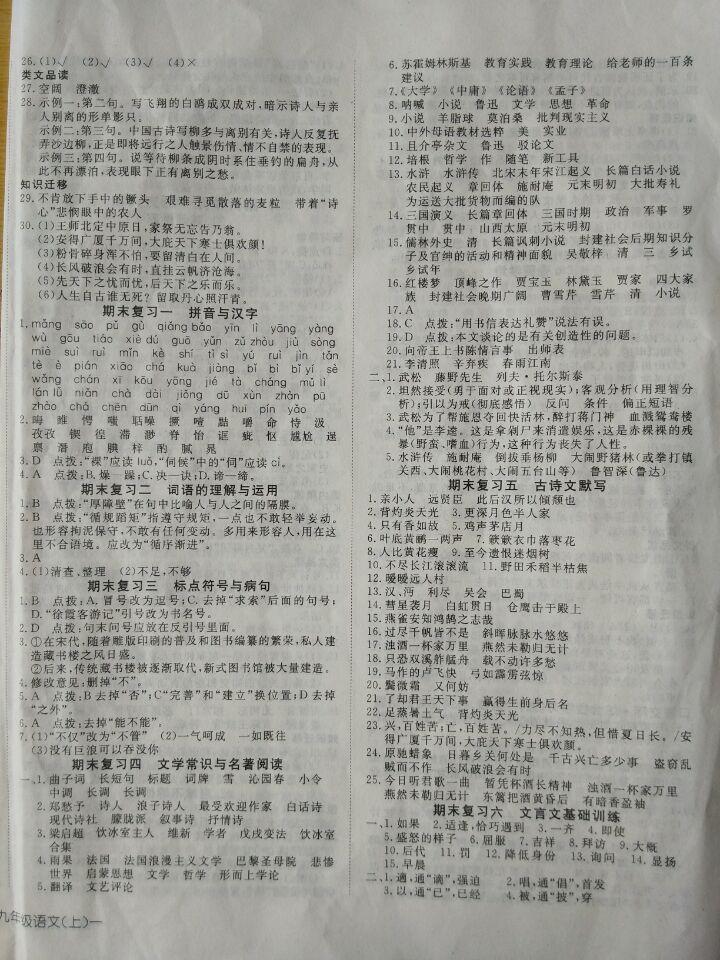 26.(1)√ (2)√ (3)√ (4)×
类文品读
27.空阔 澄澈
28.示例一:第二句。写飞翔的白鸥成双成对,暗示诗人与亲
人别离的形单影只。
示例二:第三句。中国古诗写柳多与离别有关,诗人反复抚
弄沙边柳,正是即将远行之人触景伤情、情不自禁的表现。
示例三:第四句。说等待柳条成阴时系住垂钓的扁舟,从
此不再漂泊,表现眼下正有离别之愁。
知识迁移
29.不肯放下手中的镢头 艰难寻觅散落的麦粒 带着“诗
心”悲悯眼中的农人
30.(1)王师北定中原日,家祭无忘告乃翁。
(2)安得广厦千万间,大庇天下寒士俱欢颜!
(3)粉骨碎身浑不怕,要留清白在人间。
(4)长风破浪会有时,直挂云帆济沧海。
(5)先天下之忧而忧,后天下之乐而乐。
(6)人生自古谁无死?留取丹心照汗青。
期末复习一 拼音与汉字
3.D 点拨:“裸”应读luǒ,“伺候”中的“伺”应读cì。
4.A.吵 B.燥—躁;C.决—诀;D.谛—缔。
期末复习二 词语的理解与运用
1.B 点拨:“厚障壁”在句中比喻人与人之间的隔膜。
2.B 点拨:“循规蹈矩”指遵守规矩,一点也不敢轻举妄动。
也形容拘泥保守,不敢有任何变动。多用来形容人,用在这
里不合语境。应改为“循序渐进”。
3.A
4.(1)清查、整理 (2)不足,不够
期末复习三 标点符号与病句
1.B 点拨:A.冒号改为逗号;C.去掉“求索”后面的句号;
D.“徐霞客游记”引号改为书名号。
2.D 点拨:句末问号应放在反引号里面。
3.①在宋代,随着雕版印刷的普及和图书编纂的繁荣,私人建
造藏书楼之风日盛。
②后来,传统藏书楼被逐渐取代,新式图书馆被大量建造。
4.修改意见:删掉“不”。
5.A 点拨:B去掉“否”;C“完善”和“建立”换位置;D去掉
“之外”。
6.A 点拨:去掉“能不能”。
7.(1)“不仅”改为“不管” (2)一气呵成 一如既往
(3)没有巨浪可以吞没你
期末复习四 文学常识与名著阅读
一、1.曲子词 长短句 标题 词牌 雪 沁园春 小令
中调 长调 长调
2.郑愁予 诗人 浪子诗人 最受欢迎作家 白话诗
现代诗社 朦胧派 叙事诗 抒情诗
3.梁启超 饮冰室主人 维新 学者 戊戌变法 饮冰室
合集
4.雨果 法国 法国浪漫主义文学 巴黎圣母院 悲惨
世界 启蒙思想 文学 哲学 形而上学论
5.翻译 文艺评论
九年级语文(上)一
6.苏霍姆林斯基 教育实践 教育理论 给老师的一百条
建议
7.《大学》《中庸》《论语》《孟子》
8.呐喊 小说 鲁迅 文学 思想 革命
9.小说 羊脂球 莫泊桑 批判现实主义
10.中外母语教材选粹 美 实业
11.且介亭杂文 鲁迅 驳论文
12.培根 哲学 作 随笔 新工具
13.水浒 水浒传 北宋末年宋江起义 长篇白话小说
农民起义 章回体 施耐庵 元末明初 大批寿礼
为运送大批货物而编的队
14.三国演义 长篇章回体 三国时期 政治 军事 罗
贯中 贯中 山西太原 元末明初
15.儒林外史 清 长篇讽刺小说 封建社会后期知识分
子及官绅的活动和精神面貌 吴敬梓 清 三 乡试
乡试年
16.红楼梦 顶峰之作 贾宝玉 林黛玉 贾家 四大家
族 封建社会晚期广阔 曹雪芹 雪芹 清 小说
17.A
18.C 点拨:“用书信表达礼赞”说法有误。
19.D 点拨:本文谈论的是有关创造性的问题。
20.向帝王上书陈情言事 出师表
21.李清照 辛弃疾 春雨江南
二、1.武松 藤野先生 列夫·托尔斯泰
2.坦然接受(勇于面对或正视现实);客观分析(用理智分
析);引以为戒(彻底感悟) 反问 条件 偏正短语
3.武松为了帮施恩夺回快活林,醉打蒋门神 血溅鸳鸯楼
4.“他”是李逵。这是拿剁尸来消遣娱乐,这是赤裸裸的残
暴(野蛮、嗜血)行为,这种行为丧失了人性。
5.水浒传 施耐庵 倒拔垂杨柳 大闹野猪林(或拳打镇
关西、大闹桃花村、大闹五台山等) 鲁智深(鲁达)
期末复习五 古诗文默写
1.亲小人 远贤臣 此后汉所以倾颓也
2.背灼炎天光 3.更深月色半人家
4.只有香如故 5.鸡声茅店月
6.叶底黄鹂一两声 7.簌簌衣巾落枣花
8.人比黄花瘦 9.至今遗恨迷烟树
10.不尽长江滚滚流 11.野田禾稻半枯焦
12.暧暧远人村
13.汉、沔 利尽 吴会 巴蜀
14.彗星袭月 白虹贯日 仓鹰击于殿上
15.燕雀安知鸿鹄之志哉
16.过尽千帆皆不是 斜晖脉脉水悠悠
17.浊酒一杯家万里 燕然未勒归无计
18.只恐双溪舴艋舟 载不动许多愁
19.马作的卢飞快 弓如霹雳弦惊
20.鬓微霜 又何妨
21.了却君王天下事 赢得生前身后名
22.足蒸暑土气 背灼炎天光
23.兴,百姓苦;亡,百姓苦。/力尽不知热,但惜夏日长。/安
得广厦千万间,大庇天下寒士俱欢颜!
24.原驰蜡象 日暮乡关何处是 千古兴亡多少事 盗窃乱
贼而不作 长风破浪会有时
25.今日听君歌一曲 暂凭杯酒长精神 浊酒一杯家万里
燕然未勒归无计 东篱把酒黄昏后 有暗香盈袖
期末复习六 文言文基础训练
一、1.如果 2.适逢,恰巧遇到 3.一齐 4.即使
5.盛怒的样子 6.屈服 7.吉祥 8.拜访 9.大概
10.后代 11.罚 12.降低身份 13.询问 14.显扬
15.早晨
二、1.適,通“谪”,强迫 2.唱,通“倡”,首发
3.以,通“已”,已经 4.被,通“披”,穿